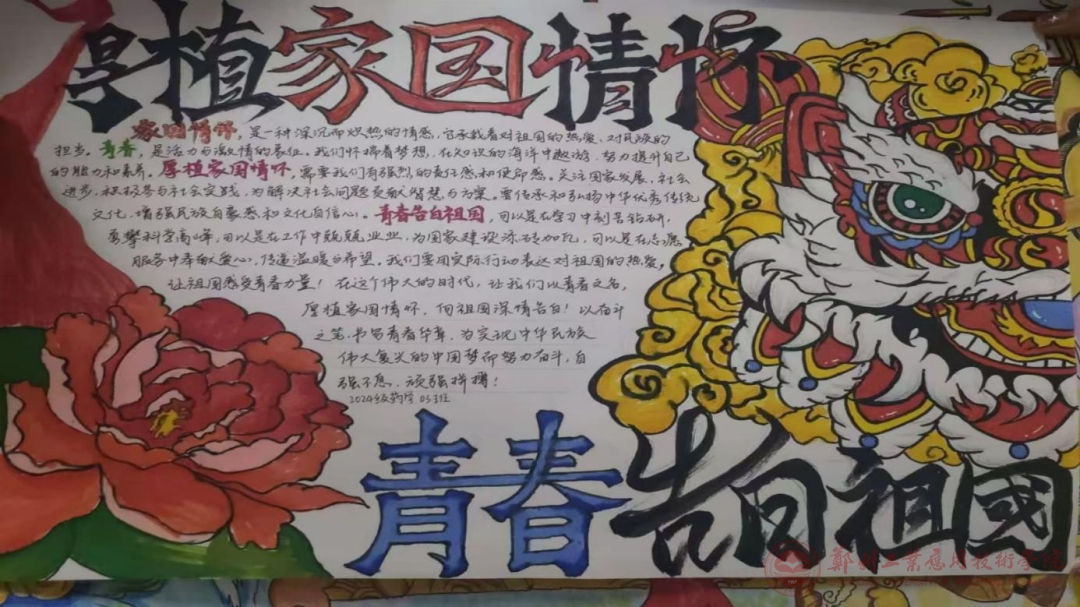 厚植家国情怀
家国情怀，是一种深沉而炽热的情感，它承载着对祖国的热爱、对民族的
担当。青春，是活力与激情的象征。我们怀揣着梦想，在知识的海洋中遨游，努力提升自己
的能力和素养。厚植家国情怀，需要我们有强烈的责任感和使命感。关注国家发展、社会
进步，积极参与社会实践，为解决社会问题贡献智慧与方案。要传承和弘扬中华优秀传统
文化，增强民族自豪感和文化自信心。青春告白祖国，可以是在学习中刻苦钻研，
勇攀科学高峰，可以是在工作中兢兢业业，为国家建设添砖加瓦，可以是在志愿
服务中奉献爱心，传递温暖与希望。我们要用实际行动表达对祖国的热爱，
让祖国感受青春力量！在这个伟大的时代，让我们以青春之名，
厚植家国情怀，向祖国深情告白！以奋斗
之笔，书写青春华章，为实现中华民族
伟大复兴的中国梦而努力奋斗，自
强不息、顽强拼搏！
2024级药学03班
青春告白祖國
鄭州工業應用技術學院